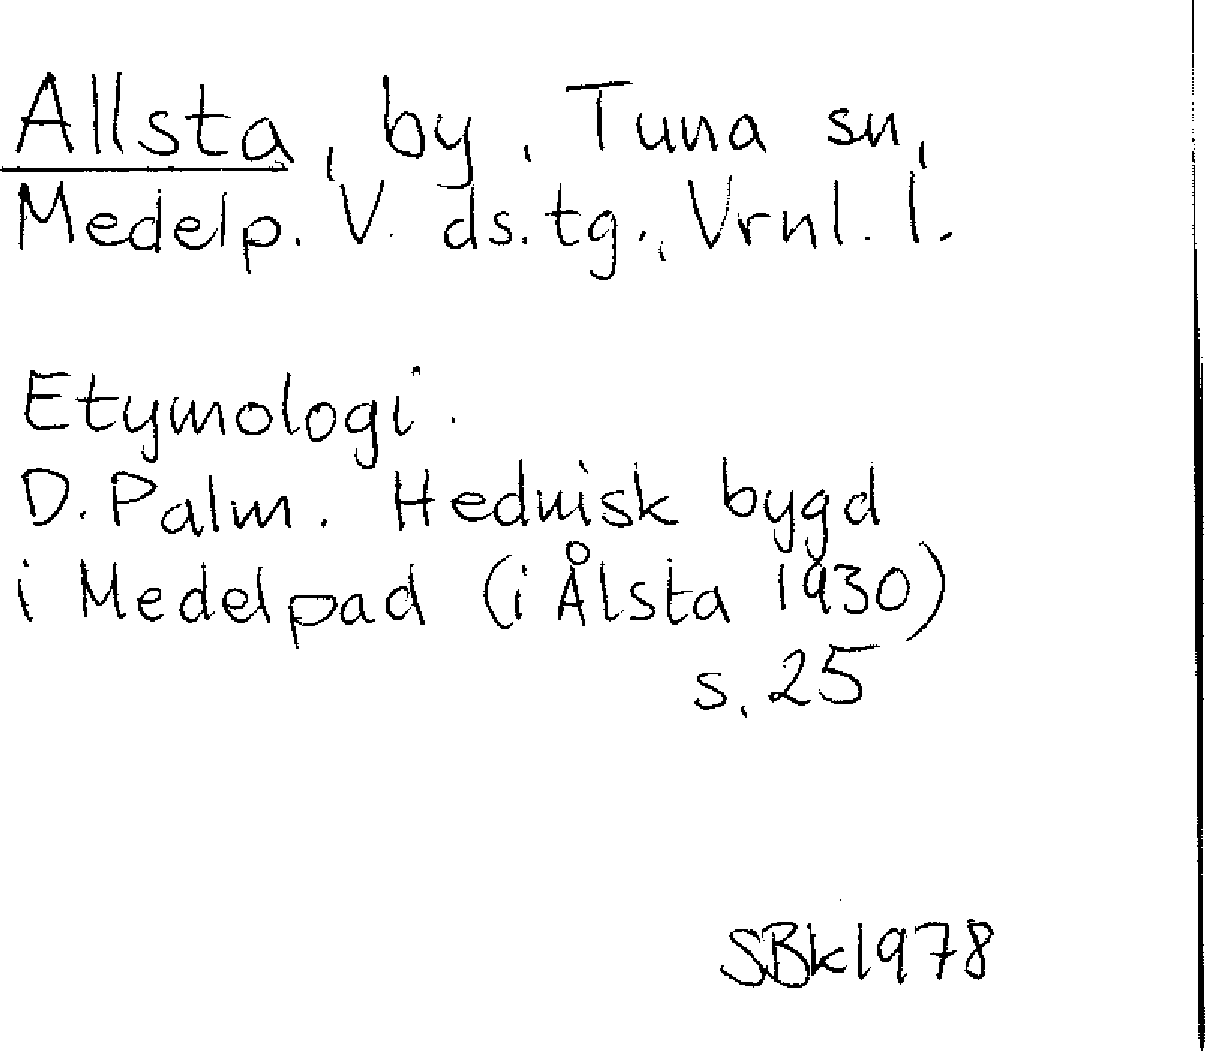 Allsta, by, Tuna sn,
Medelp. V. ds.tg., Vrnl. l.
Etymologi.
D. Palm. Hednisk bygd
i Medelpad (i Ålsta 1930)
s. 25
SBk1978